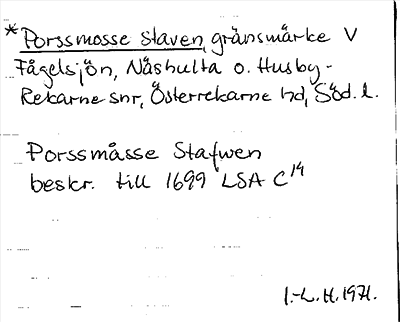 *Porssmosse staven, gränsmärke V
Fågelsjön, Näshulta o. Husby-
Rekarne snr, Österrekarne hd, Söd. l.
Porssmåsse Stafwen
beskr. till 1699 LSA C14
I.-L. H. 1971.